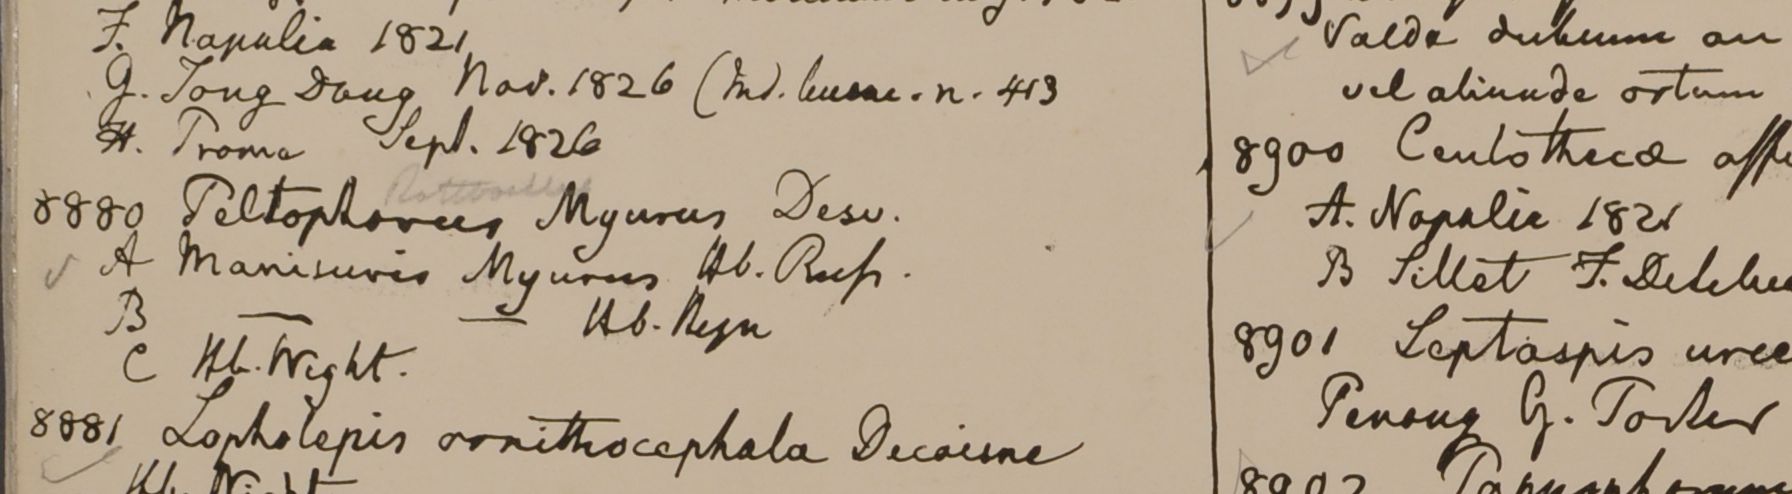 F. Napalia 1821
G. Tong Dong Nov. 1826 (Ind. burm. n. 413
H. Prome Sept. 1826
Rottboellia
8880 Peltophorus Myurus Desv.
A Manisuris Myurus Hb. Russ.
B — — Hb. Heyn
C Hb. Wight.
8881 Lopholepis ornithocephala Decaisne
Hb. Wight
Valde dubium an
vel aliunde ortum
8900 Centotheca
A. Napalia 1821
B Sillet F. De
8901 Leptaspis urce
Penang G. Porter
8902